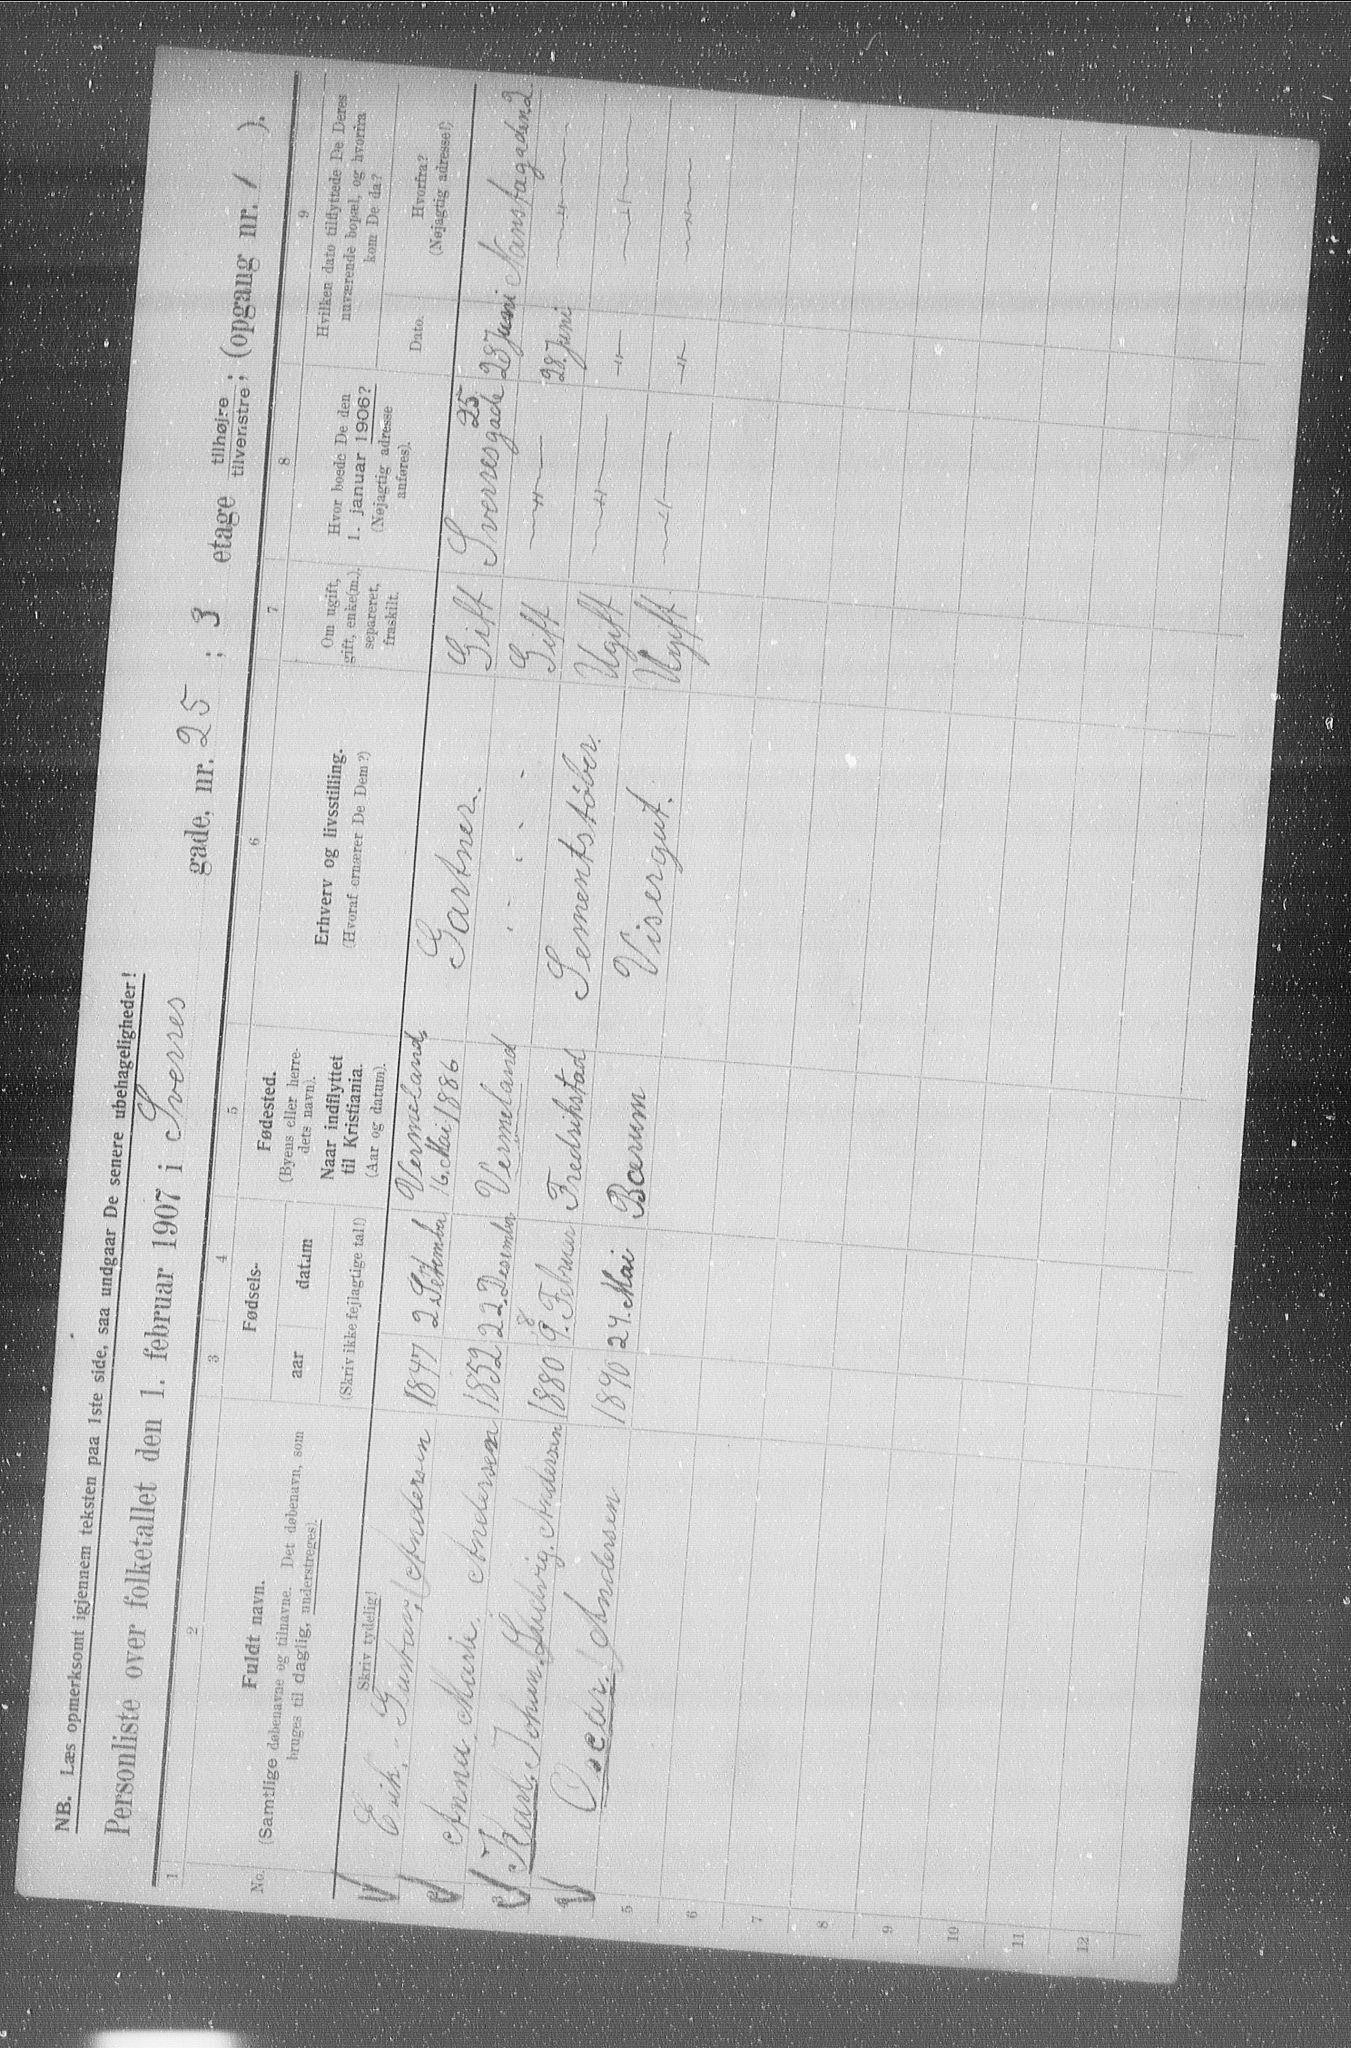 NB. Læs opmerksomt igjennem teksten paa 1ste side, saa undgaar De senere ubehageligheder!
Personliste over folketallet den 1. februar 1907 i Sverres gade, nr. 25; 3 etage tilhøjre tilvenstre; (opgang nr. 1 ).
1 2 3 4 5 6 7 8 9
No.
Fuldt navn.
(Samtlige døbenavne og tilnavne. Det døbenavn, som
bruges til daglig, understreges).
Skriv tydelig!
Fødsels-
aar datum
(Skriv ikke fejlagtige tal!)
Fødested.
(Byens eller herre-
dets navn).
Naar indflyttet
til Kristiania.
(Aar og datum).
Erhverv og livsstilling.
(Hvoraf ernærer De Dem?)
Om ugift,
gift, enke(m.),
separeret,
fraskilt.
Hvor boede De den
1. januar 1906?
(Nøjagtig adresse
anføres).
Hvilken dato tilflyttede De Deres
nuværende bopæl, og hvorfra
kom De da?
Dato.
Hvorfra?
(Nøjagtig adresse!)
Erik Gustav Andersen 1847 2 Vermeland 16. Mai 1886 Gartner. Gift Sverresgade 25 28 Juni
Anna Marie Andersen 1852 22 Desember Vermeland Gift —"— 28. Juni —"—
Karl Johan Ludvig Andersen 1880 9. Februar Fredrikstad Sementstøber. Ugift —"— —"— —"—
Oscar Andersen 1890 24. Mai Barum Visergut. Ugift —"— —"— —"—
5
6
7
8
9
10
11
12